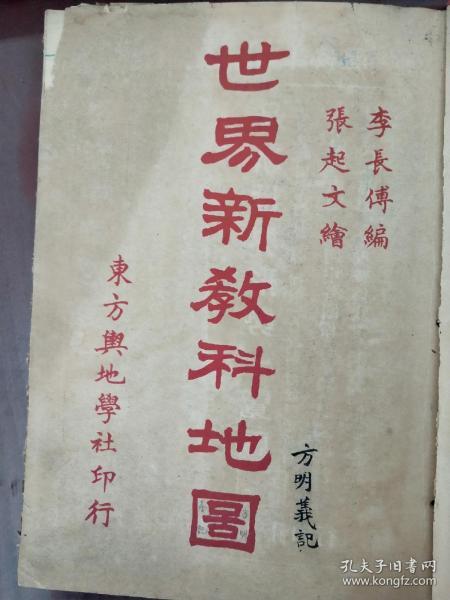 李長傅編
張起文繪
世界新教科地圖
方明義記
東方輿地學社印行
孔夫子旧书网
www.kongfz.com